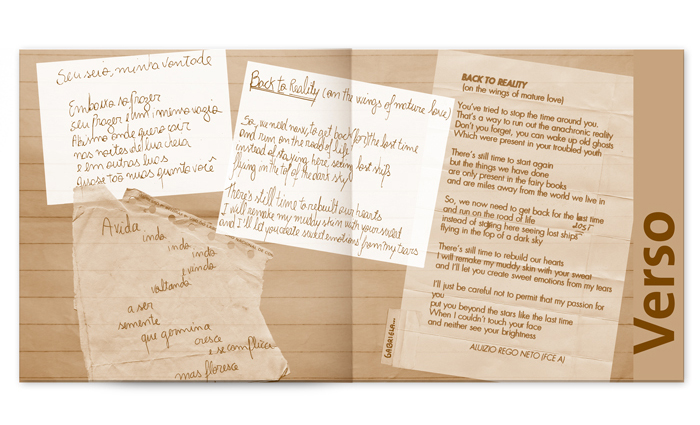 Seu seio, minha vontade
Embaixo so frazer
seu frazer é um mimo vazio
Abismo onde quero cair
nas noites de lua cheia
e em outras luas
quase tão nuas quanto você
A vida
indo
indo
indo
e vindo
voltando
a ser
semente
que germina
cresce
e se complica
mas floresce
Back to Reality (on the wings of mature love)
So, we need now to get back for the last time
and run on the road of life
instead of staying here, seeing lost ships
flying in the top of the dark sky
There's still time to rebuilt our hearts
I will remake my muddy skin with your sweat
and I'll let you create sweet emotions from my tears
BACK TO REALITY
(on the wings of mature love)
You've tried to stop the time around you.
That's a way to run out the anachronic reality
Don't you forget, you can wake up old ghosts
Which were present in your troubled youth
There's still time to start again
but the things we have done
are only present in the fairy books
and are miles away from the world we live in
So, we now need to get back for the last time
and run on the road of life
LOST
instead of staying here seeing lost ships
flying in the top of a dark sky
There's still time to rebuild our hearts
I will remake my muddy skin with your sweat
and I'll let you create sweet emotions from my tears
I'll just be careful not to permit that my passion for
you
put you beyond the stars like the last time
When I couldn't touch your face
and neither see your brightness
ALUIZIO REGO NETO (FCE A)
GABRIELA...
Verso